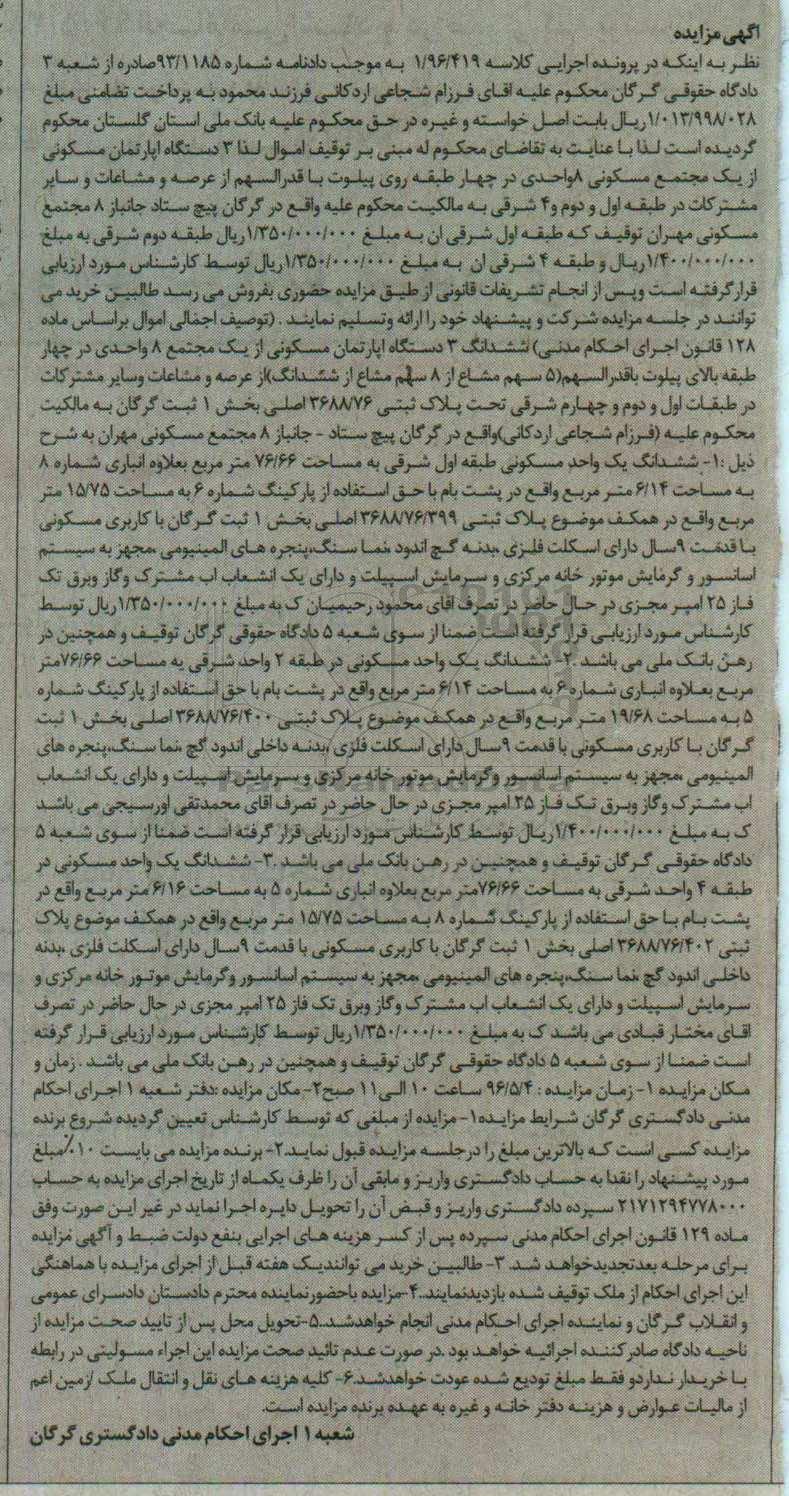 آگهی مزایده
نظر به اینکه در پرونده اجرایی کلاسه ۱/۹۶/۴۱۹ به موجب دادنامه شماره ۹۳/۱۱۸۵صادره از شعبه ۳
دادگاه حقوقی گرگان محکوم علیه اقای فرزام شجاعی اردکانی فرزند محمود به پرداخت تضامنی مبلغ
۱/۰۱۳/۹۹۸/۰۲۸ریال بابت اصل خواسته و غیره در حق محکوم علیه بانک ملی استان گلستان محکوم
گردیده است لذا با عنایت به تقاضای محکوم له مبنی بر توقیف اموال لذا ۳ دستگاه اپارتمان مسکونی
از یک مجتمع مسکونی ۸واحدی در چهار طبقه روی پیلوت با قدرالسهم از عرصه و مشاعات و سایر
مشترکات در طبقه اول و دوم و۴ شرقی به مالکیت محکوم علیه واقع در گرگان پیچ ستاد جانباز ۸ مجتمع
مسکونی مهران توقیف که طبقه اول شرقی ان به مبلغ ۱/۳۵۰/۰۰۰/۰۰۰ریال طبقه دوم شرقی به مبلغ
۱/۴۰۰/۰۰۰/۰۰۰ریال و طبقه ۴ شرقی ان به مبلغ ۱/۳۵۰/۰۰۰/۰۰۰ریال توسط کارشناس مورد ارزیابی
قرارگرفته است وپس از انجام تشریفات قانونی از طریق مزایده حضوری بفروش می رسد طالبین خرید می
توانند در جلسه مزایده شرکت و پیشنهاد خود را ارائه وتسلیم نمایند . (توصیف اجمالی اموال براساس ماده
۱۲۸ قانون اجرای احکام مدنی) ششدانگ ۳ دستگاه اپارتمان مسکونی از یک مجتمع ۸ واحدی در چهار
طبقه بالای پیلوت باقدرالسهم(۵ سهم مشاع از ۸ سهم مشاع از ششدانگ)از عرصه و مشاعات وسایر مشترکات
در طبقات اول و دوم و چهارم شرقی تحت پلاک ثبتی ۳۶۸۸/۷۶ اصلی بخش ۱ ثبت گرگان به مالکیت
محکوم علیه (فرزام شجاعی اردکانی)واقع در گرگان پیچ ستاد - جانباز ۸ مجتمع مسکونی مهران به شرح
ذیل :۱- ششدانگ یک واحد مسکونی طبقه اول شرقی به مساحت ۷۶/۶۶ متر مربع بعلاوه انباری شماره ۸
به مساحت ۶/۱۴ متر مربع واقع در پشت بام با حق استفاده از پارکینگ شماره ۶ به مساحت ۱۵/۷۵ متر
مربع واقع در همکف موضوع پلاک ثبتی ۳۶۸۸/۷۶/۳۹۹ اصلی بخش ۱ ثبت گرگان با کاربری مسکونی
با قدمت ۹سال دارای اسکلت فلزی ،بدنه گچ اندود ،نما سنگ،پنجره های المینیومی ،مجهز به سیستم
اسانسور و گرمایش موتور خانه مرکزی و سرمایش اسپیلت و دارای یک انشعاب اب مشترک وگاز وبرق تک
فاز ۲۵ امپر مجزی در حال حاضر در تصرف اقای محمود رحیمیان ک به مبلغ ۱/۳۵۰/۰۰۰/۰۰۰ریال توسط
کارشناس مورد ارزیابی قرار گرفته است ضمنا از سوی شعبه ۵ دادگاه حقوقی گرگان توقیف و همچنین در
رهن بانک ملی می باشد .۲- ششدانگ یک واحد مسکونی در طبقه ۲ واحد شرقی به مساحت ۷۶/۶۶متر
مربع بعلاوه انباری شماره ۶ به مساحت ۶/۱۴ متر مربع واقع در پشت بام با حق استفاده از پارکینگ شماره
۵ به مساحت ۱۹/۶۸ متر مربع واقع در همکف موضوع پلاک ثبتی ۳۶۸۸/۷۶/۴۰۰ اصلی بخش ۱ ثبت
گرگان با کاربری مسکونی با قدمت ۹سال دارای اسکلت فلزی ،بدنه داخلی اندود گچ ،نما سنگ،پنجره های
المینیومی ،مجهز به سیستم اسانسور وگرمایش موتور خانه مرکزی و سرمایش اسپیلت و دارای یک انشعاب
اب مشترک وگاز وبرق تک فاز ۲۵ امپر مجزی در حال حاضر در تصرف اقای محمدتقی اورسیجی می باشد
ک به مبلغ ۱/۴۰۰/۰۰۰/۰۰۰ریال توسط کارشناس مورد ارزیابی قرار گرفته است ضمنا از سوی شعبه ۵
دادگاه حقوقی گرگان توقیف و همچنین در رهن بانک ملی می باشد .۳- ششدانگ یک واحد مسکونی در
طبقه ۴ واحد شرقی به مساحت ۷۶/۶۶متر مربع بعلاوه انباری شماره ۵ به مساحت ۶/۱۶ متر مربع واقع در
پشت بام با حق استفاده از پارکینگ شماره ۸ به مساحت ۱۵/۷۵ متر مربع واقع در همکف موضوع پلاک
ثبتی ۳۶۸۸/۷۶/۴۰۲ اصلی بخش ۱ ثبت گرگان با کاربری مسکونی با قدمت ۹سال دارای اسکلت فلزی ،بدنه
داخلی اندود گچ ،نما سنگ،پنجره های المینیومی ،مجهز به سیستم اسانسور وگرمایش موتور خانه مرکزی و
سرمایش اسپیلت و دارای یک انشعاب اب مشترک وگاز وبرق تک فاز ۲۵ امپر مجزی در حال حاضر در تصرف
اقای مختار قبادی می باشد ک به مبلغ ۱/۳۵۰/۰۰۰/۰۰۰ریال توسط کارشناس مورد ارزیابی قرار گرفته
است ضمنا از سوی شعبه ۵ دادگاه حقوقی گرگان توقیف و همچنین در رهن بانک ملی می باشد . زمان و
مکان مزایده ۱- زمان مزایده : ۹۶/۵/۴ ساعت ۱۰ الی۱۱ صبح۲-مکان مزایده :دفتر شعبه ۱ اجرای احکام
مدنی دادگستری گرگان شرایط مزایده۱-مزایده از مبلغی که توسط کارشناس تعیین گردیده شروع برنده
مزایده کسی است که بالاترین مبلغ را درجلسه مزایده قبول نماید.۲- برنده مزایده می بایست ۱۰٪مبلغ
مورد پیشنهاد را نقدا به حساب دادگستری واریز و مابقی آن را ظرف یکماه از تاریخ اجرای مزایده به حساب
۲۱۷۱۲۹۴۷۷۸۰۰۰ سپرده دادگستری واریز و قبض آن را تحویل دایره اجرا نماید در غیر این صورت وفق
ماده ۱۲۹ قانون اجرای احکام مدنی سپرده پس از کسر هزینه های اجرایی بنفع دولت ضبط و آگهی مزایده
برای مرحله بعدتجدیدخواهد شد. ۳- طالبین خرید می توانندیک هفته قبل از اجرای مزایده با هماهنگی
این اجرای احکام از ملک توقیف شده بازدیدنمایند.۴-مزایده باحضورنماینده محترم دادستان دادسرای عمومی
و انقلاب گرگان و نماینده اجرای احکام مدنی انجام خواهدشد..۵-تحویل محل پس از تایید صحت مزایده از
ناحیه دادگاه صادرکننده اجرائیه خواهد بود .در صورت عدم تائید صحت مزایده این اجراء مسولیتی در رابطه
با خریدار نداردو فقط مبلغ تودیع شده عودت خواهدشد.۶- کلیه هزینه های نقل و انتقال ملک ازمین اعم
از مالیات عوارض و هزینه دفتر خانه و غیره به عهده برنده مزایده است.
شعبه ۱ اجرای احکام مدنی دادگستری گرگان